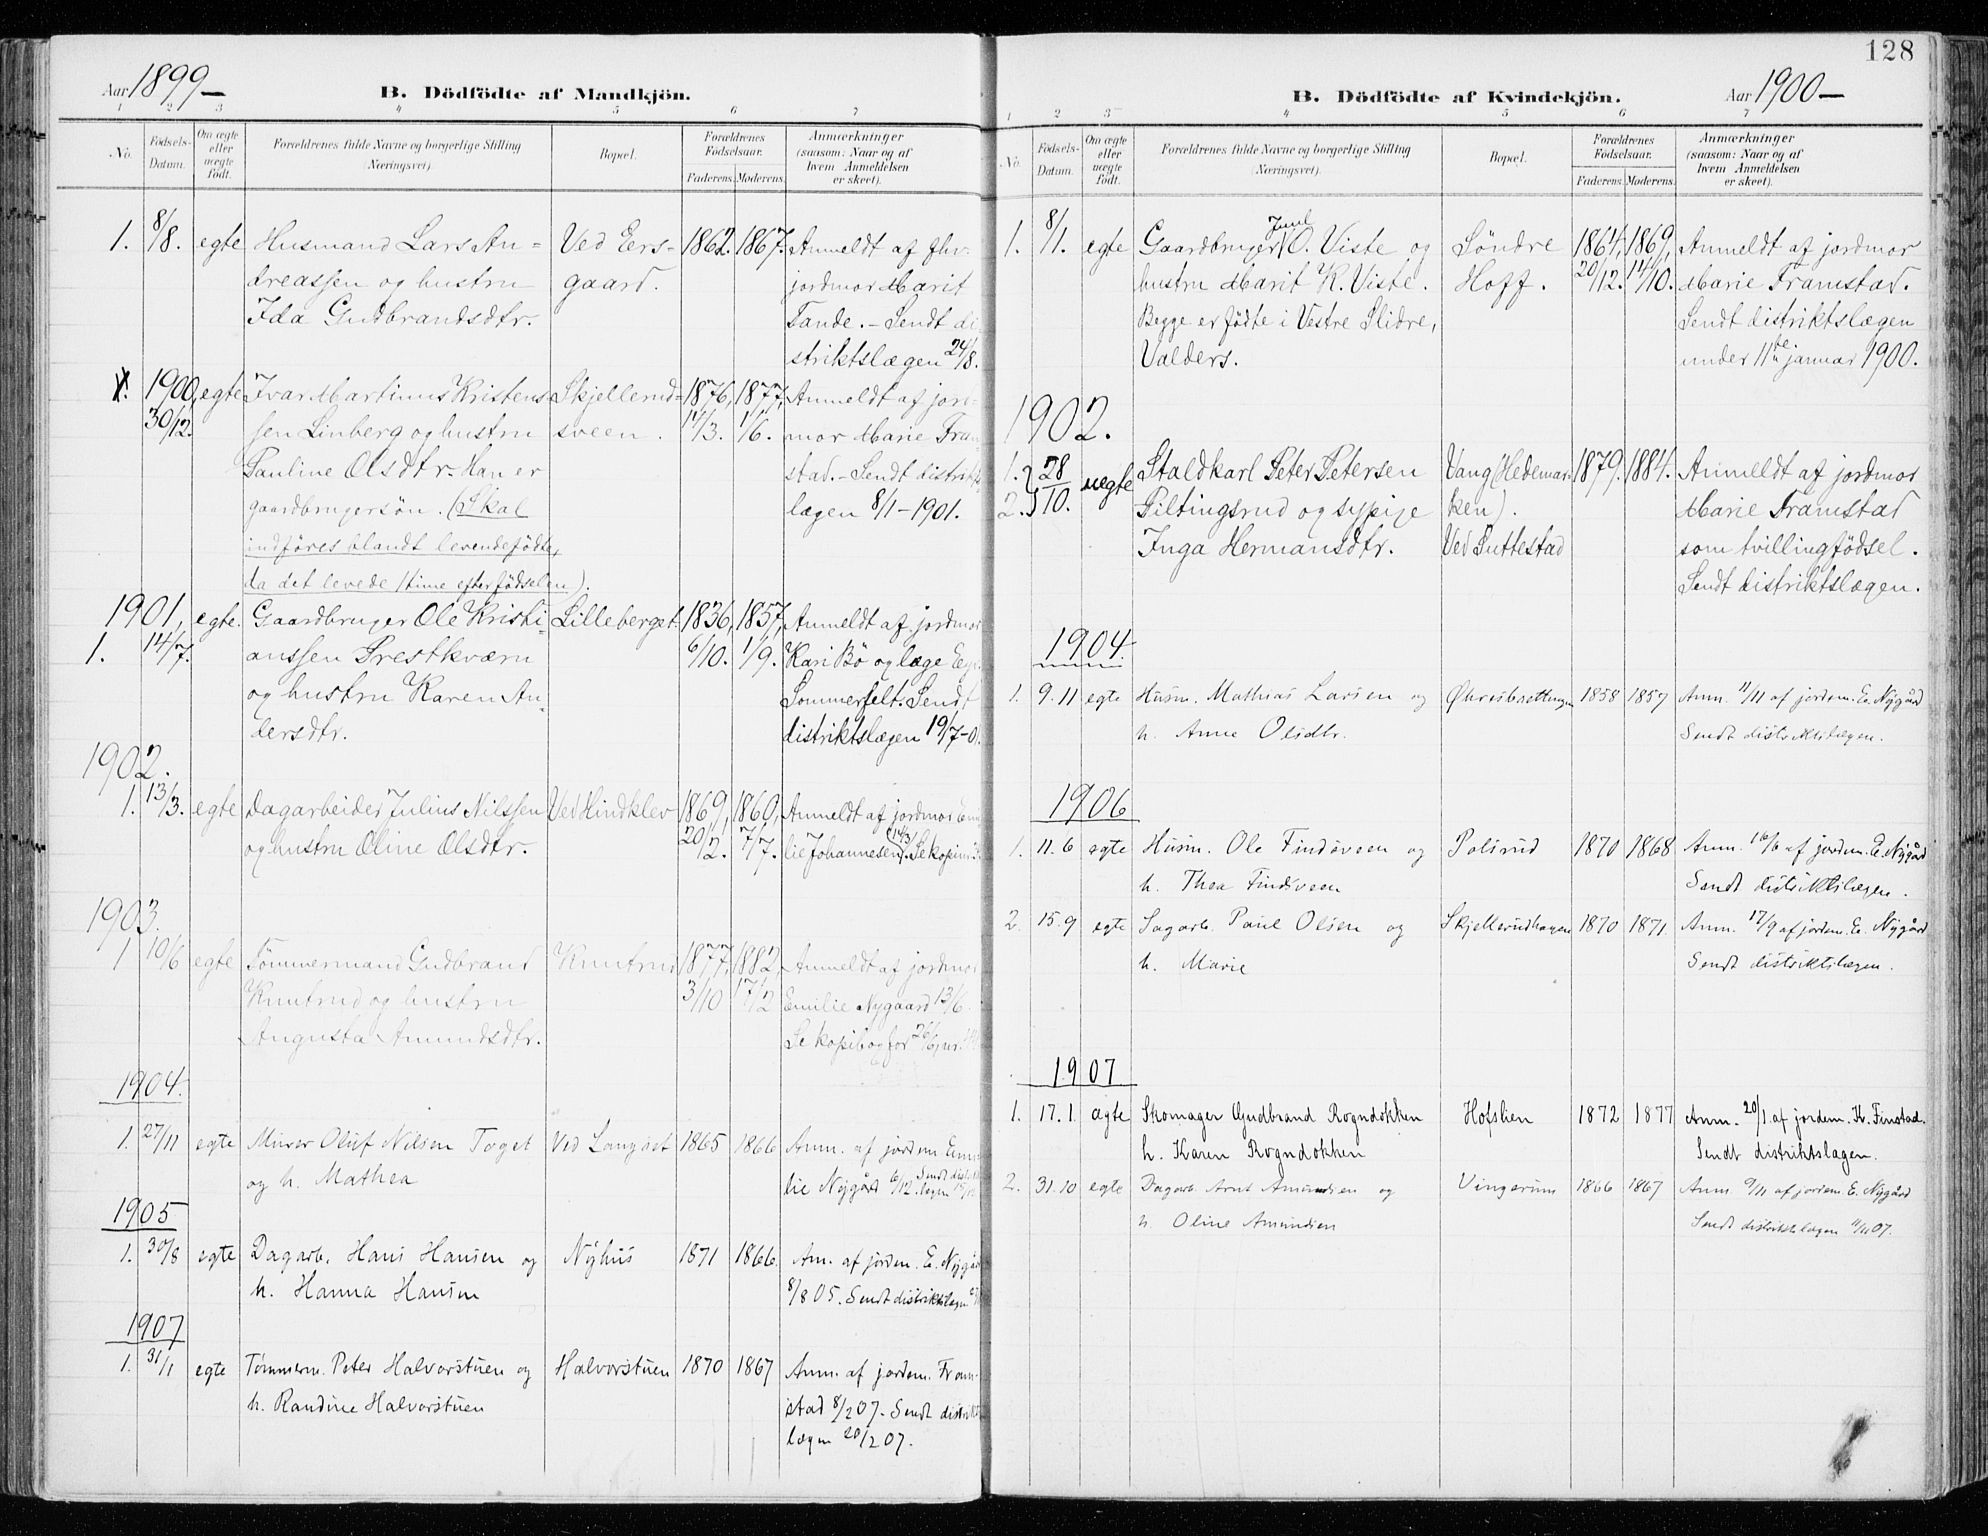 Aar 1899 –
B. Dödfödte af Mandkjön.
1 2 3 4 5 6 7
No.
Födsels-
Datum.
Om ægte
eller
uægte
födt.
Forældrenes fulde Navne og borgerlige Stilling
(Næringsvei).
Bopæl.
Forældrenes
Födselsaar.
Faderens. Moderens.
Anmærkninger
(saasom: Naar og af
hvem Anmeldelsen
er skeet).
1. 8/8. egte Husmand Lars An- Ved Eers- 1862. 1867. Anmeldt af fhv.
dreassen og hustru gaard. jordmor Marit
Ida Gudbrandsdtr. Tande. – Sendt di-
striktslægen 24/8.
1. 1900, egte Ivar Martinus Kristens- Skjellerud- 1876, 1877, Anmeldt af jord-
30/12. sen Linberg og hustru sveen. 17/3. 1/6. mor Marie Fram-
Pauline Olsdtr. Han er stad. – Sendt distrikts-
gaardbrugersön. (Skal lægen 8/1 – 1901.
indföres blandt levendefödte,
da det levede 1 time efter födselen).
1901, egte. Gaardbruger Ole Kristi- Lilleberget. 1836, 1857, Anmeldt af jordmor
1. 14/7. anssen Prestkværn 6/10. 1/9. Kari Bö og læge
og hustru Karen An- Sommerfelt. Sendt
dersdtr. distriktslægen 19/7 – 01.
1902.
1. 13/3. egte Dagarbeider Julius Nilssen Ved Hindklev 1869, 1860, Anmeldt af jordmor Emi-
og hustru Oline Olsdtr. 20/2. 7/7. lie Johannesen (14/3). Se kopi
1903.
1 10/6 egte Tömmermand Gudbrand Knutrud 1877. 1882 Anmeldt af jordmor
Knutrud og hustru 3/10 17/2 Emilie Nygaard 13/6.
Augusta Amundsdtr. Se kopibog for 26/6, nr.
1904.
1. 27/11 egte Murer Oluf Nilsen Toget Ved Langset 1865 1866 Anm. af jordm. Emi-
og h. Mathea lie Nygård 6/12. Sendt distrikts-
lægen
1905
1. 30/8 egte Dagarb. Hans Hansen og Nyhus 1871 1866. Am. af jordm. E. Nygård
h. Hanna Hansen 8/8 05. Sendt distriktslægen
1907
1. 31/1 egte Tømmerm. Peter Halvorstuen og Halvorstuen 1870 1867 Anm. af jordm. Fram-
h. Randine Halvorstuen stad 8/2 07. Sendt distrikts
lægen 20/2 07.
128
B. Dödfödte af Kvindekjön.
Aar 1900 –
1 2 3 4 5 6 7
No.
Födsels-
Datum.
Om ægte
eller
uægte
födt.
Forældrenes fulde Navne og borgerlige Stilling
(Næringsvei).
Bopæl.
Forældrenes
Födselsaar.
Faderens. Moderens.
Anmærkninger
(saasom: Naar og af
hvem Anmeldelsen
er skeet).
1. 8/1. egte Gaardbruger Juul O. Viste og Söndre 1864, 1869, Anmeldt af jordmor
hustru Marit K. Viste. Hoff. 20/12. 14/10. Marie Framstad.
Begge er födte i Vestre Slidre, Sendt distriktslægen
Valders. under 11te januar 1900.
1902.
1. 28 uegte Staldkarl Peter Petersen Vang (Hedemar- 1879. 1884. Anmeldt af jordmor
2. 10. Piltingsrud og sypige ken). Marie Framstad
Inga Hermansdtr. Ved Suttestad som tvillingfödsel.
Sendt distriktslægen.
1904.
1. 9.11 egte Husm. Mathias Larsen og Øhresbættingen 1858 1857 Anm. 11/11 af jordem. E. Nygård
h. Anne Olsdtr. Sendt distriktslægen.
1906
1. 11.6 egte Husm. Ole Findsveen og Polsrud 1870 1868 Anm. 16/6 af jordem. E. Nygård
h. Thea Findsveen Sendt distriktslægen.
2. 15.9 egte Sagarb. Paul Olsen og Skjellerudhagen 1870 1871. Anm. 17/9 af jordem. E. Nygård
h. Marie Sendt distriktslægen.
1907
1. 17.1. ægte Skomager Gudbrand Rogndokken Hofslien 1872 1877 Anm. 20/1 af jordem. K. Finstad.
h. Karen Rogndokken Sendt distriktslagen.
2. 31.10 egte Dagarb. Arnt Amundsen og Vingerum 1866 1867 Anm. 9/11 af jordem. E. Nygård
h. Oline Amundsen Sendt distriktslægen 11/11 07.